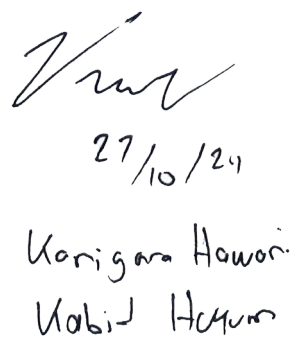 27/10/24
Karigara Hawari
Kabid Hukum